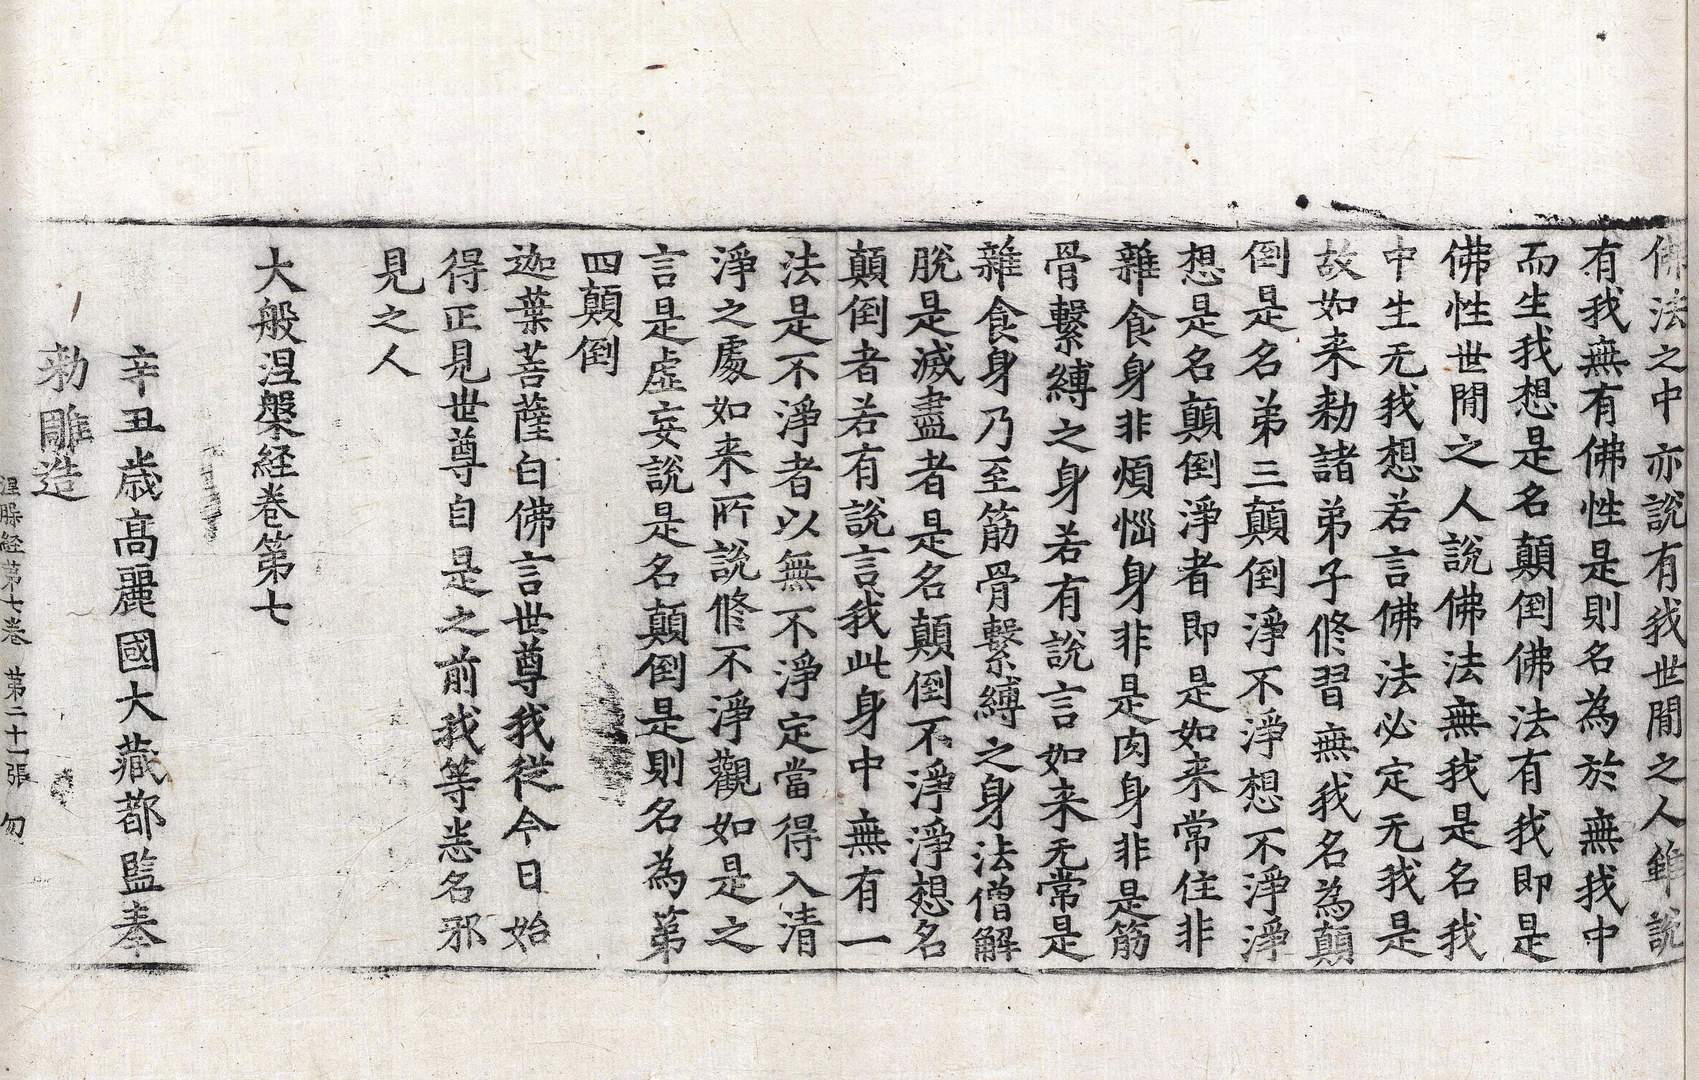 佛法之中亦說有我世閒之人雖說
有我無有佛性是則名為於無我中
而生我想是名顛倒佛法有我即是
佛性世閒之人說佛法無我是名我
中生无我想若言佛法必定无我是
故如来勑諸弟子修習無我名為顛
倒是名弟三顛倒淨不淨想不淨淨
想是名顛倒淨者即是如来常住非
雜食身非煩惱身非是肉身非是筋
骨繫縛之身若有說言如来无常是
雜食身乃至筋骨繫縛之身法僧解
脫是滅盡者是名顛倒不淨淨想名
顛倒者若有說言我此身中無有一
法是不淨者以無不淨定當得入清
淨之處如来所說修不淨觀如是之
言是虛妄說是名顛倒是則名為第
四顛倒
迦葉菩薩白佛言世尊我從今日始
得正見世尊自是之前我等悉名邪
見之人
大般涅槃経卷第七
辛丑歲髙麗國大藏都監奉
勑雕造
涅槃経第七卷 第二十一張 勿